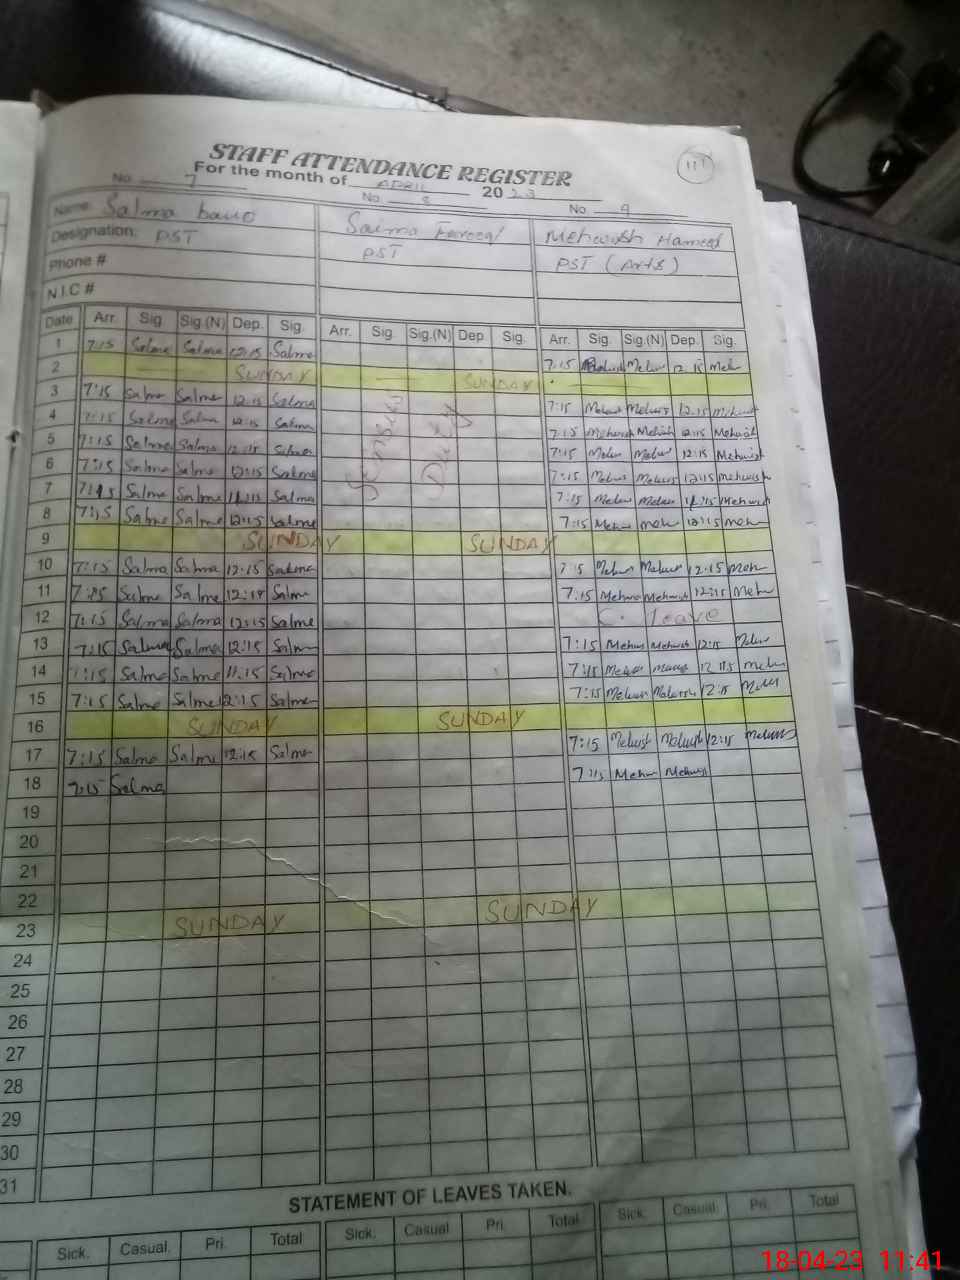 STAFF ATTENDANCE REGISTER
111
For the month of APRIL 2023
No 7 No 8 No 9
Name: Salma bano Saima Mehwish Hameed
Designation: PST PST PST (Arts)
Phone #
N.I.C #
Date Arr. Sig Sig.(N) Dep. Sig. Arr. Sig. Sig.(N) Dep Sig. Arr. Sig. Sig.(N) Dep. Sig.
1 7:15 Salma Salma 12:15 Salma 7:15 12:15 Meh
2 SUNDAY SUNDAY
3 7:15 Salma Salma 12:15 Salma 7:15 12:15
4 7:15 Salma Salma 12:15 Salma 7:15 Mehwish Mehwish 12:15 Mehwish
5 7:15 Salma Salma 12:15 Salma 7:15 12:15 Mehwish
6 7:15 Salma Salma 12:15 Salma 7:15 12:15 Mehwish
7 7:15 Salma Salma 11:15 Salma 7:15 11:15 Mehwish
8 7:15 Salma Salma 12:15 Salma 7:15 Meh 12:15 Meh
Senses Duty
9 SUNDAY SUNDAY
10 7:15 Salma Salma 12:15 Salma 7:15 12:15 Meh
11 7:15 Salma Salma 12:15 Salma 7:15 Mehwish 12:15 Meh
12 7:15 Salma Salma 12:15 Salma C. Leave
13 7:15 Salma Salma 12:15 Salma 7:15 Mehwish 12:15
14 7:15 Salma Salma 11:15 Salma 7:15
15 7:15 Salma Salma 12:15 Salma 7:15 12:15
16 SUNDAY SUNDAY
17 7:15 Salma Salma 12:15 Salma 7:15 12:15
18 7:15 Salma 7:15
19
20
21
22 SUNDAY
23 SUNDAY
24
25
26
27
28
29
30
31
STATEMENT OF LEAVES TAKEN.
Sick. Casual. Pri. Total Sick. Casual Pri. Total Sick. Casual. Pri. Total
18-04-23 11:41